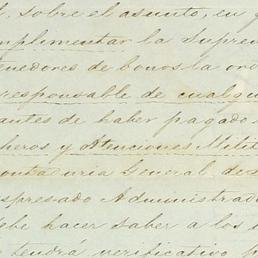 sobre el asunto, en
mplimentar la Suprem
tenedores de bonos la or
responsable de cualqu
antes de haber pagado
heros y Atenciones Milit
ontaduria General de
spresado Administrado
ebe hacer saber a los
tendrá verificativo p